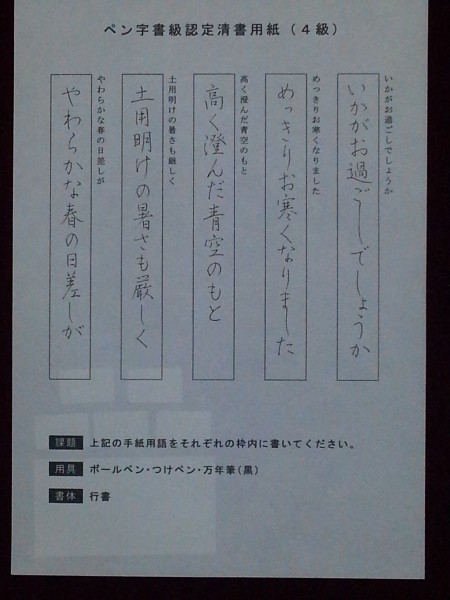 ペン字書級認定清書用紙（４級）
いかがお過ごしでしょうか
いかがお過ごしでしょうか
めっきりお寒くなりました
めっきりお寒くなりました
高く澄んだ青空のもと
高く澄んだ青空のもと
土用明けの暑さも厳しく
土用明けの暑さも厳しく
やわらかな春の日差しが
やわらかな春の日差しが
課題 上記の手紙用語をそれぞれの枠内に書いてください。
用具 ボールペン・つけペン・万年筆（黒）
書体 行書